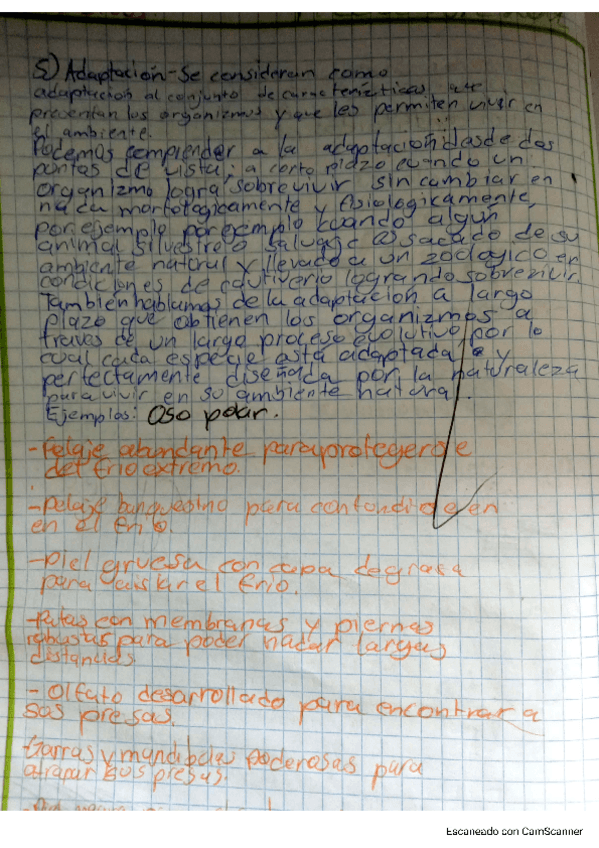 5) Adaptación-Se consideran como
adaptacion al conjunto de caracteristicas que
presentan los organizmos y que les permiten vivir en
el ambiente.
Podemos comprender a la adaptación desde dos
puntos de vista; a corto plazo cuando un
organizmo logra sobrevivir sin cambiar en
nada morfologicamente y fisiologicamente,
por ejemplo por ejemplo cuando algun
animal silvestre o salvaje es sacado de su
ambiente natural y llevado a un zoologico en
condiciones de cautiverio logrando sobrevivir.
Tambien hablamos de la adaptacion a largo
plazo que obtienen los organizmos a
traves de un largo proceso evolutivo, por lo
cual cada especie está adaptada y
perfectamente diseñada por la naturaleza
para vivir en su ambiente natural.
Ejemplos: Oso polar.
-Pelaje abundante para protegerse
del frio extremo.
-Pelaje para confundirse en
en el frio.
-Piel gruesa con capa de grasa
para aislar el frio.
-Patas con membranas y piernas
robustas para poder nadar largas
distancias.
- Olfato desarrollado para encontrar a
sus presas.
Garras y mandibulas poderosas para
atrapar sus presas.
Escaneado con CamScanner